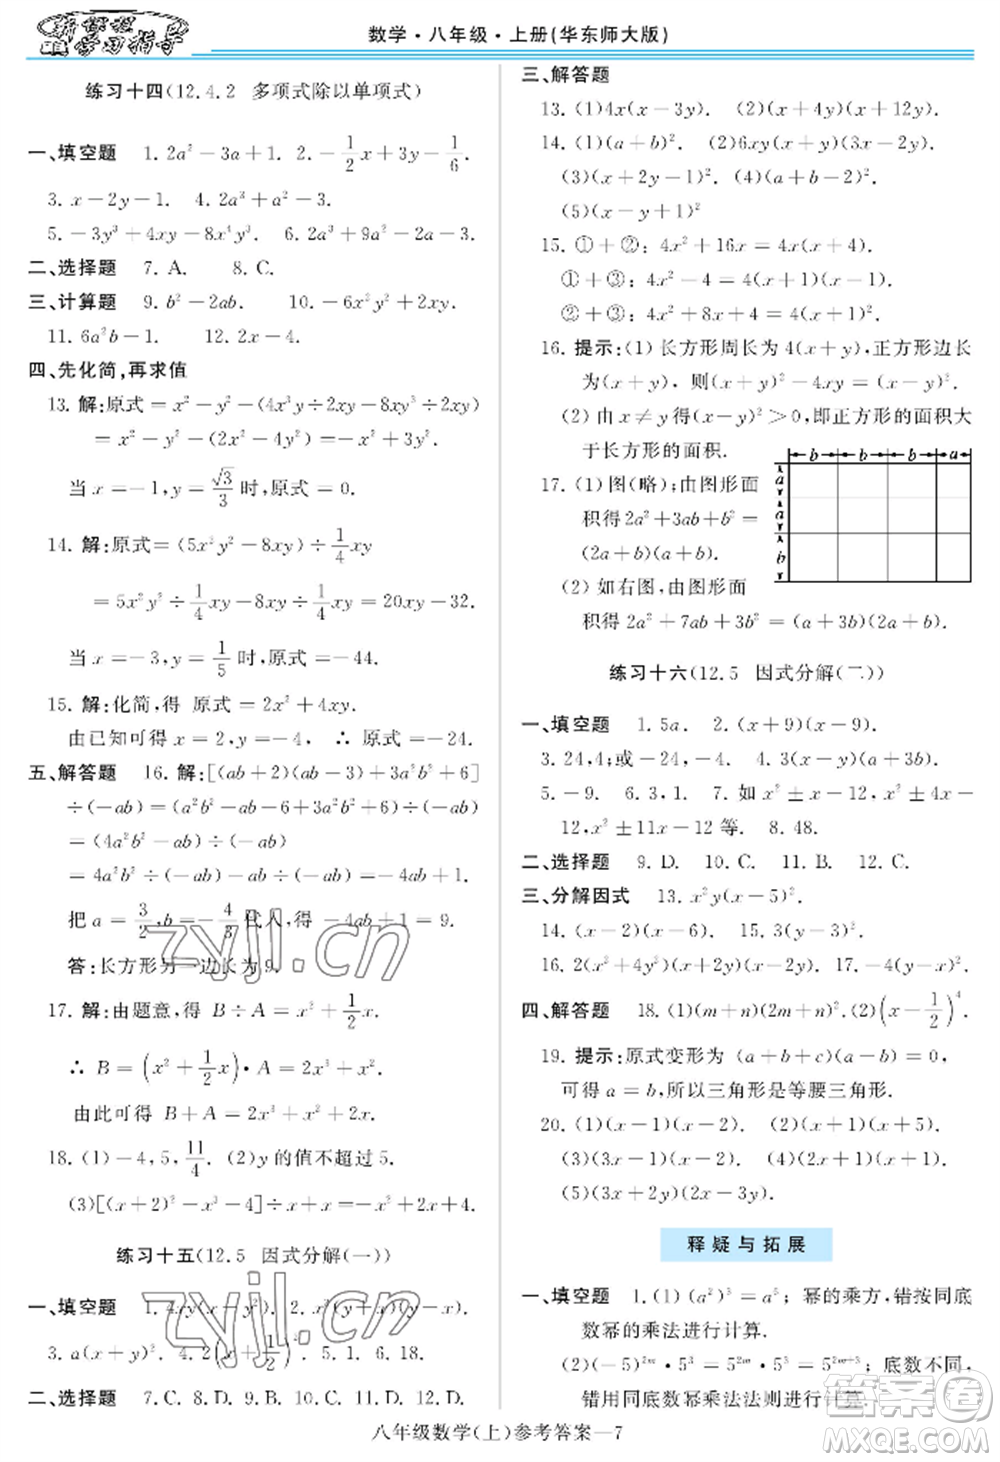 新课程
学习指导
数学·八年级·上册(华东师大版)
练习十四(12.4.2 多项式除以单项式)
一、填空题 1. 2a²-3a+1. 2. -1/2x+3y-1/6.
3. x-2y-1. 4. 2a³+a²-3.
5. -3y³+4xy-8x⁴y². 6. 2a³+2a²-2a-3.
二、选择题 7. A. 8. C.
三、计算题 9. b²-2ab. 10. -6x²y²+2xy.
11. 6a²b-1. 12. 2x-4.
四、先化简,再求值
13. 解:原式=x²-y²-(4x³y÷2xy-8xy³÷2xy)
=x²-y²-(2x²-4y²)=-x²+3y².
当x=-1,y=√3/3时,原式=0.
14. 解:原式=(5x²y²-8xy)÷1/4xy
=5x²y²÷1/4xy-8xy÷1/4xy=20xy-32.
当x=-3,y=1/5时,原式=-44.
15. 解:化简,得 原式=2x²+4xy.
由已知可得x=2,y=-4, ∴ 原式=-24.
五、解答题 16. 解:[(ab+2)(ab-3)+3a²b²+6]
÷(-ab)=(a²b²-ab-6+3a²b²+6)÷(-ab)
=(4a²b²-ab)÷(-ab)
=4a²b²÷(-ab)-ab÷(-ab)=-4ab+1.
把a=3/2,b=-4/3代入,得 -4ab+1=9.
答:长方形另一边长为9.
17. 解:由题意,得 B÷A=x²+1/2x.
∴ B=(x²+1/2x)·2x=2x³+x².
由此可得 B+A=2x³+x²+2x.
18. (1)-4,5,11/4. (2)y的值不超过5.
(3)[(x+2)²-x³-4]÷x=-x²+x+4.
练习十五(12.5 因式分解(一))
一、填空题 1. 4xy(x+2y). 2. x²(y+x)(y-x).
3. a(x+y)². 4. 2(a+1/2)². 5. 1. 6. 18.
二、选择题 7. C. 8. D. 9. C. 10. D. 11. C. 12. B.
三、解答题
13. (1)4x(x-3y). (2)(x+4y)(x+12y).
14. (1)(a+b). (2)6xy(x+y)(3x-2y).
(3)(x+2)². (4)(a+b-2)².
(5)(x-y+1)²
15. ①+②: 4x²+16x=4x(x+4).
①+③: 4x²-4=4(x+1)(x-1).
②+③: 4x²+8x+4=4(x+1)².
16. 提示:(1)长方形周长为4(x+y),正方形边长
为(x+y),则(x+y)²-4xy=(x-y)².
(2)由x≠y得(x-y)²>0,即正方形的面积大
于长方形的面积.
17. (1)图(略);由图形面
积得2a²+3ab+b²=
(2a+b)(a+b).
(2)如右图,由图形面
积得2a²+7ab+3b²=(a+3b)(2a+b).
b b b a
a
a
b
练习十六(12.5 因式分解(二))
一、填空题 1. 5a. 2. (x+9)(x-9).
3. 24,4;或-24,-4. 4. 3(x-y)(x-y-2).
5. -9. 6. 1. 7. 如x²±x-12,x²±4x-
12,x²±11x-12等. 8. 48.
二、选择题 9. D. 10. C. 11. B. 12. C.
三、分解因式 13. x²y(x-5)².
14. (x-2)(x-6). 15. 3(2-x)².
16. 2(x²+4y²)(x+2y)(x-2y). 17. -4(x-y)².
四、解答题 18. (1)(m+n)(2m+n)². (2)(x-1/2)⁴.
19. 提示:原式变形为(a+b+c)(a-b)=0,
可得a=b,所以三角形是等腰三角形.
20. (1)(x-1)(x-2). (2)(x+1)(x+5).
(3)(x-3)(x+1). (4)(x+3)(x-2).
(5)(x-7y)(x-3y).
释疑与拓展
一、填空题 1. (1)(a²)³=a⁵;幂的乘方,错按同底
数幂的乘法进行计算.
(2)(-5)²ᵐ·5³=5²ᵐ·5³=5²ᵐ⁺³;底数不同,
错用同底数幂乘法法则进行计算.
八年级数学(上)参考答案—7
zyjl.cn
zyjl.cn
答案圈